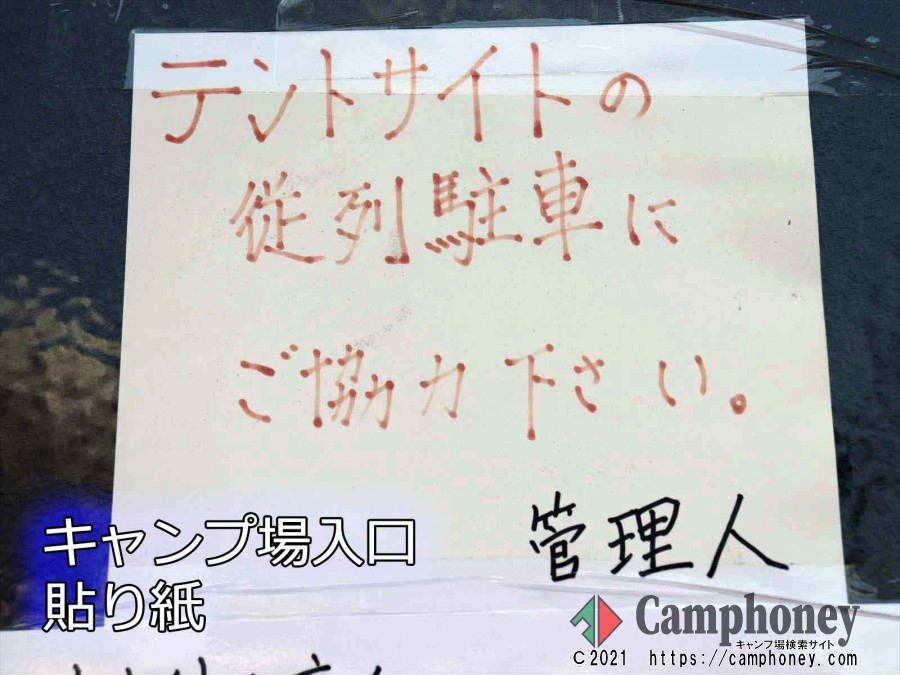 テントサイトの
従列駐車に
ご協力下さい。
管理人
キャンプ場入口
貼り紙
Camphoney
キャンプ場検索サイト
©2021 https://camphoney.com